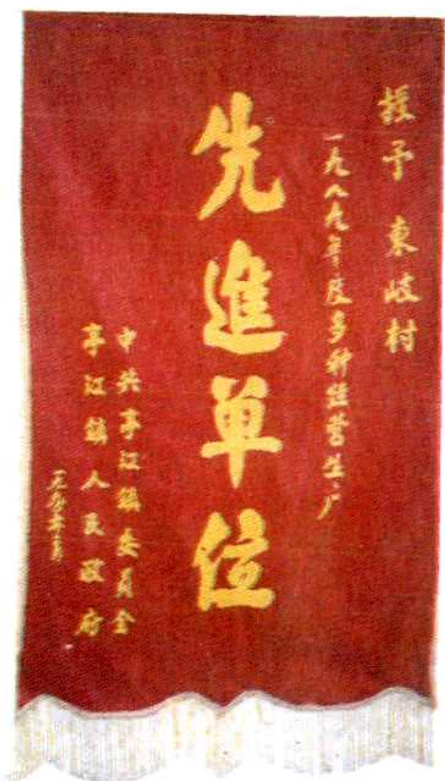 授予 東岐村
一九八九年度多种经营生产
先進单位
中共亭江镇委员会
亭江镇人民政府